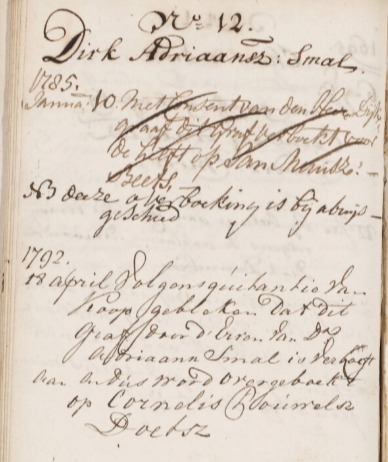 No 12.
Dirk Adriaansz: Smal.
1785.
Janua: 10. Met Consent van den Heer Dijk
graaf dit graf verboekt voor
de helft op Jan
Beets,
NB deeze overboeking is bij abuijs —
geschied
1792.
18 april Volgens quitantie van
Koop gebleken dat dit
graf door d'Erven van Ds
Adriaann Smal is verkogt
aan en dus word overgeboekt
op Cornelis Louwelsz
Doetsz